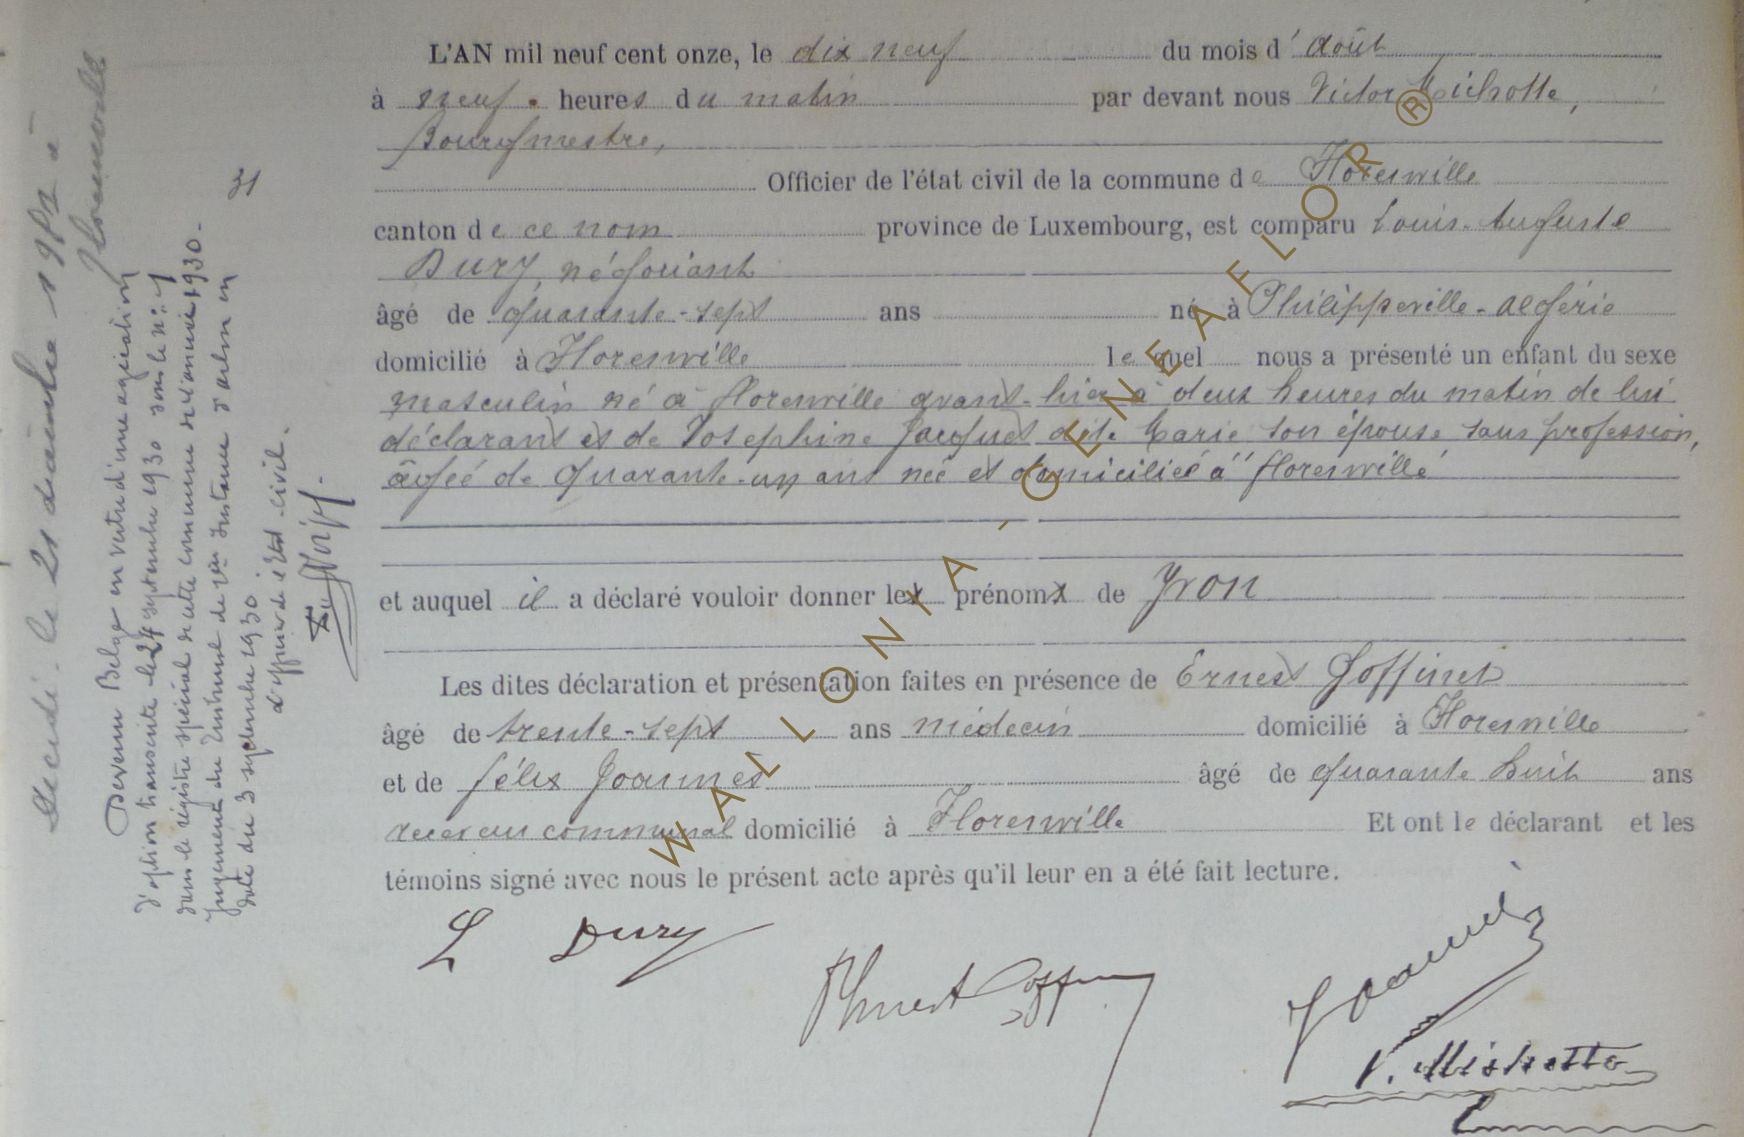 L'AN mil neuf cent onze, le dix neuf du mois d'août
à neuf heures du matin par devant nous Victor Michotte,
Bourgmestre,
Officier de l'état civil de la commune de Florenville
canton de ce nom province de Luxembourg, est comparu Louis-Auguste
Dury, négociant
âgé de quarante-sept ans né à Philippeville-Algérie
domicilié à Florenville lequel nous a présenté un enfant du sexe
masculin né à Florenville avant-hier à deux heures du matin de lui
déclarant et de Josephine Jacques dite Marie son épouse sans profession,
âgée de quarante-un ans née et domiciliée à Florenville
et auquel il a déclaré vouloir donner le prénom de Yvon
Les dites déclaration et présentation faites en présence de Ernest Goffinet
âgé de trente-sept ans médecin domicilié à Florenville
et de Félix Joannès âgé de quarante huit ans
receveur communal domicilié à Florenville Et ont le déclarant et les
témoins signé avec nous le présent acte après qu'il leur en a été fait lecture.
L Dury
Ernest Goffinet
Joannès
V. Michotte
31
Décédé le 21 décembre à
Florenville
Devenu Belge en vertu d'une
d'option transcrite le 24 septembre 1930 sous le n° 1
dans le registre spécial de cette commune de l'année 1930.
Jugement du Tribunal de 1ère Instance d'Arlon en
date du 3 septembre 1930
L'officier de l'Etat civil.
WALLONIA - GENEAFLOR ®